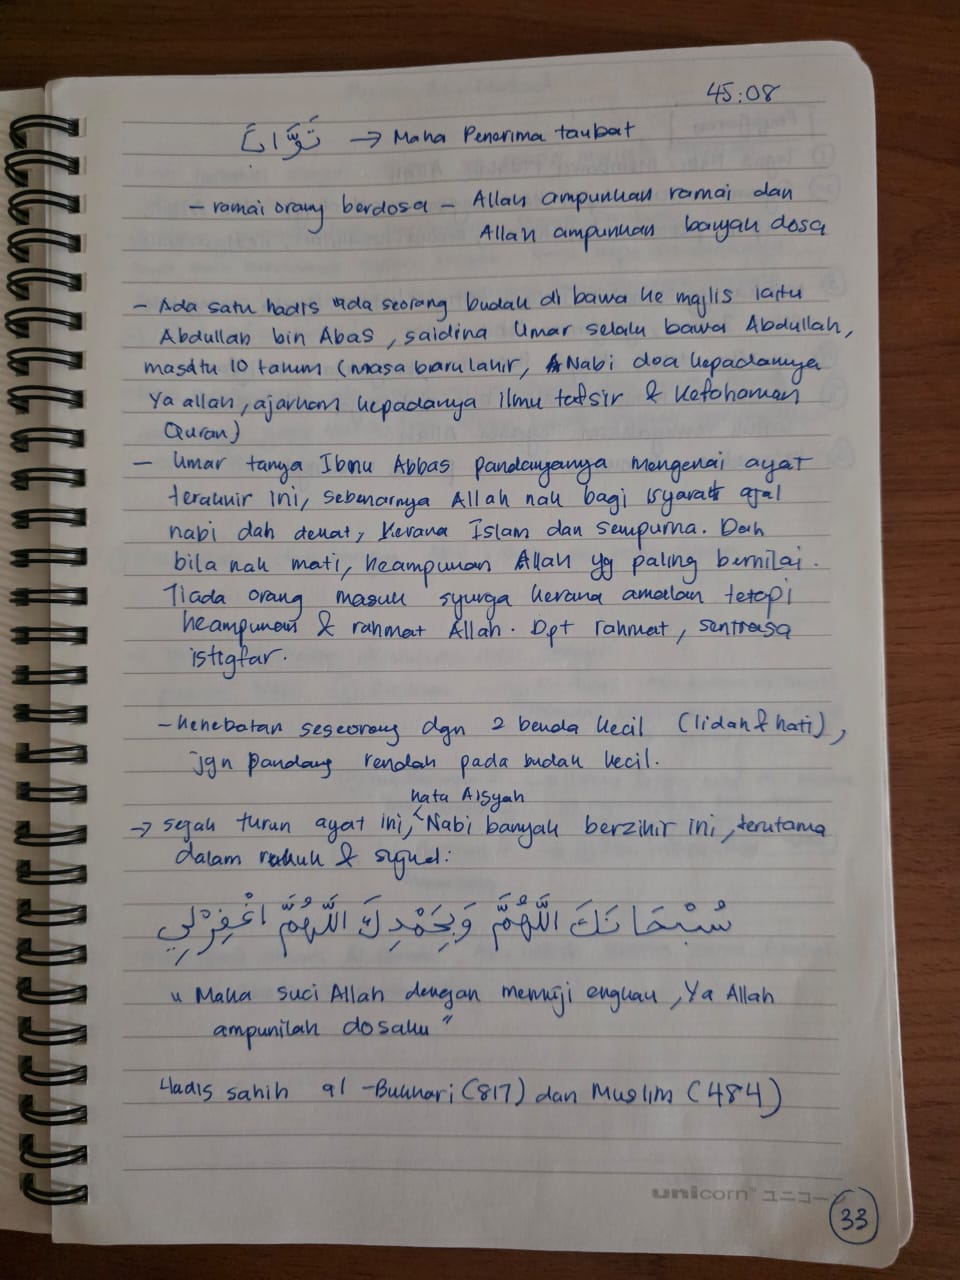 45:08
تَوَّابًا → Maha Penerima taubat
- ramai orang berdosa - Allah ampunkan ramai dan
Allah ampunkan banyak dosa
- Ada satu hadis ada seorang budak di bawa ke majlis iaitu
Abdullah bin Abas, saidina Umar selalu bawa Abdullah,
masatu 10 tahun (masa baru lahir, Nabi doa kepadanya
Ya allah, ajarkan kepadanya ilmu tafsir & kefahaman
Quran)
- Umar tanya Ibnu Abbas pandangannya mengenai ayat
terakhir ini, sebenarnya Allah nak bagi isyarat ajal
nabi dah dekat, kerana Islam dan sempurna. Dah
bila nak mati, keampunan Allah yg paling bernilai.
Tiada orang masuk syurga kerana amalan tetapi
keampunan & rahmat Allah. Dpt rahmat, sentiasa
istigfar.
- kehebatan seseorang dgn 2 benda kecil (lidah & hati),
jgn pandang rendah pada budak kecil.
kata Aisyah
→ sejak turun ayat ini, Nabi banyak berzikir ini, terutama
dalam rukuk & sujud:
سُبْحَانَكَ اللَّهُمَّ وَبِحَمْدِكَ اللَّهُمَّ اغْفِرْلِي
" Maha suci Allah dengan memuji engkau, Ya Allah
ampunilah dosaku"
Hadis sahih al-Bukhari (817) dan Muslim (484)
unicorn ユニコーン
33